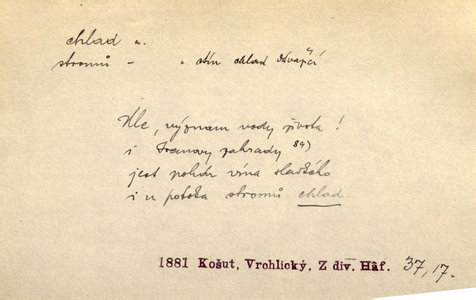 chlad m.
stromů – " stín chlad Kvapil
Hle, význam vody života!
i Iramovy zahrady 84)
jest pohár vína sladkého
i u potoka stromů chlad.
1881 Košut, Vrchlický, Z div. Háf. 37,17.